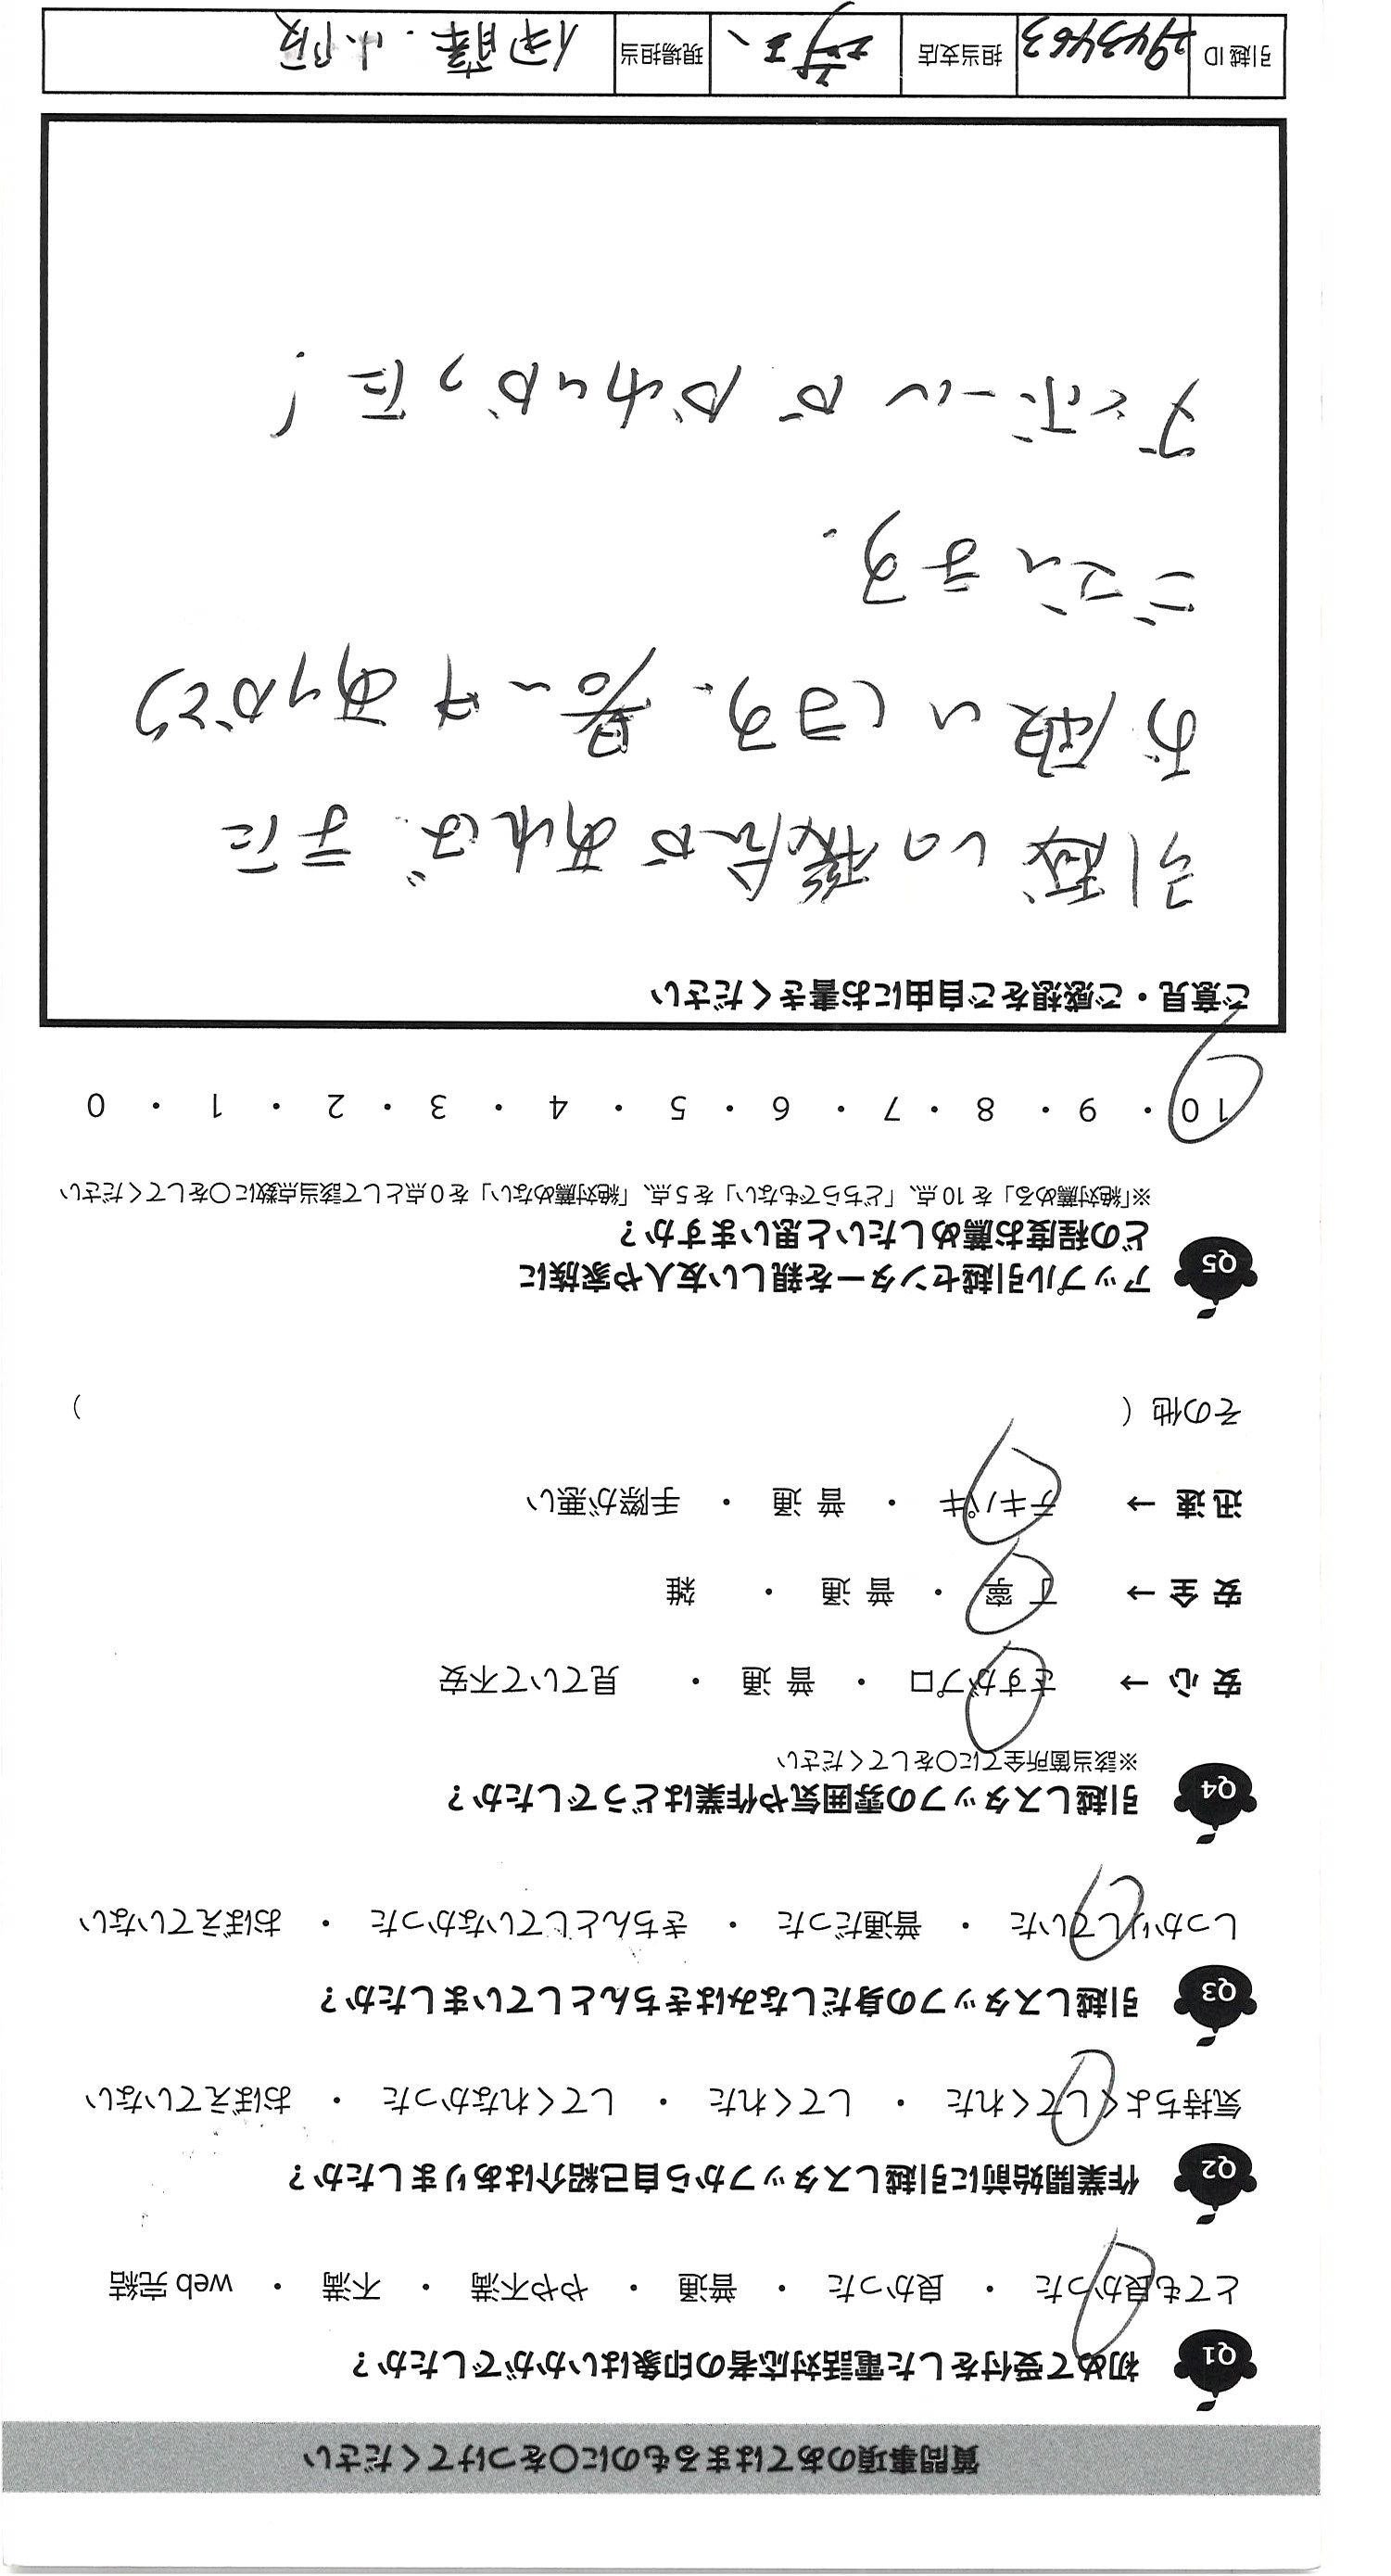 質問事項のあてはまるものに〇をつけてください
Q1 初めて受付をした電話対応者の印象はいかがでしたか？
とても良かった ・ 良かった ・ 普通 ・ やや不満 ・ 不満 ・ web完結
Q2 作業開始前に引越しスタッフから自己紹介はありましたか？
気持ちよくしてくれた ・ してくれた ・ してくれなかった ・ おぼえていない
Q3 引越しスタッフの身だしなみはきちんとしていましたか？
しっかりしていた ・ 普通だった ・ きちんとしていなかった ・ おぼえていない
Q4 引越しスタッフの雰囲気や作業はどうでしたか？
※該当箇所全てに〇をしてください
安心→ さすがプロ ・ 普通 ・ 見ていて不安
安全→ 丁寧 ・ 普通 ・ 雑
迅速→ テキパキ ・ 普通 ・ 手際が悪い
その他（ ）
Q5 アップル引越センターを親しい友人や家族に
どの程度お薦めしたいと思いますか？
※「絶対薦める」を10点、「どちらでもない」を5点、「絶対薦めない」を0点として該当点数に〇をしてください
10 ・ 9 ・ 8 ・ 7 ・ 6 ・ 5 ・ 4 ・ 3 ・ 2 ・ 1 ・ 0
ご意見・ご感想をご自由にお書きください
引越しの機会があれば、また
お願いします。暑い中ありがとう
ございます。
ダンボールがかわいかった！
引越ID 29435463 担当支店 現場担当 伊藤・小阪